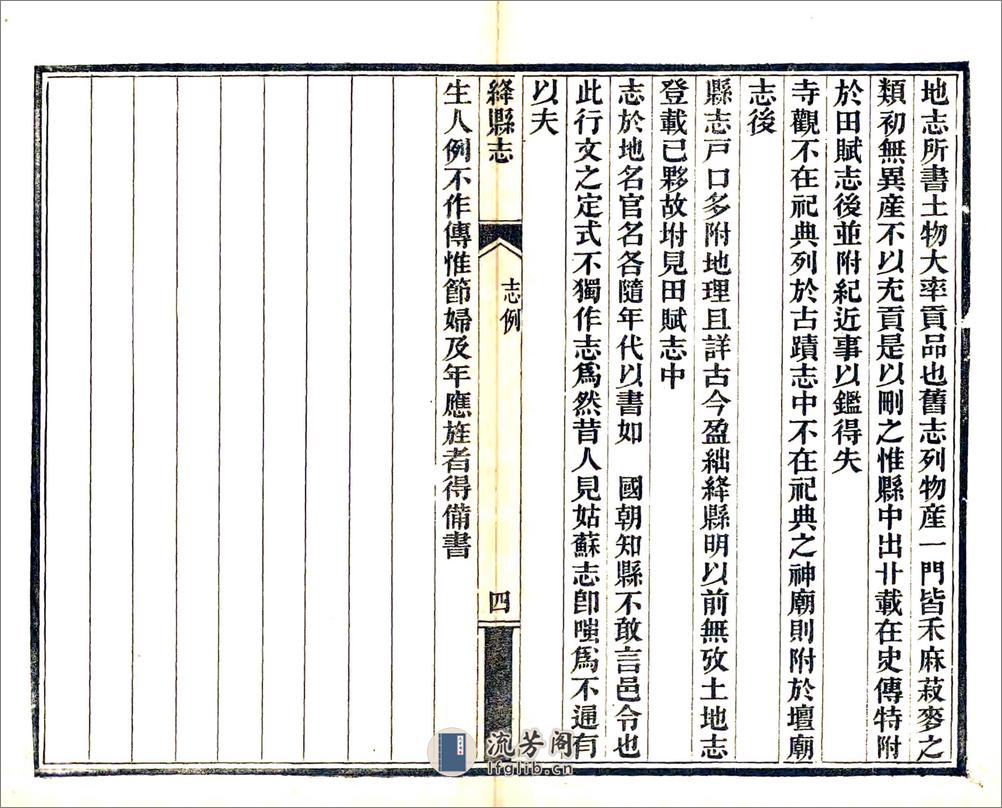 地志所書土物大率貢品也舊志列物産一門皆禾麻菽麥之
類初無異産不以充貢是以刪之惟縣中出廾載在史傳特附
於田賦志後並附紀近事以鑑得失
寺觀不在祀典列於古蹟志中不在祀典之神廟則附於壇廟
志後
縣志戸口多附地理且詳古今盈絀絳縣明以前無攷土地志
登載已夥故坿見田賦志中
志於地名官名各隨年代以書如　國朝知縣不敢言邑令也
此行文之定式不獨作志爲然昔人見姑蘇志卽嗤爲不通有
以夫
絳縣志
志例
四
生人例不作傳惟節婦及年應旌者得備書
流芳阁
lfglib.cn